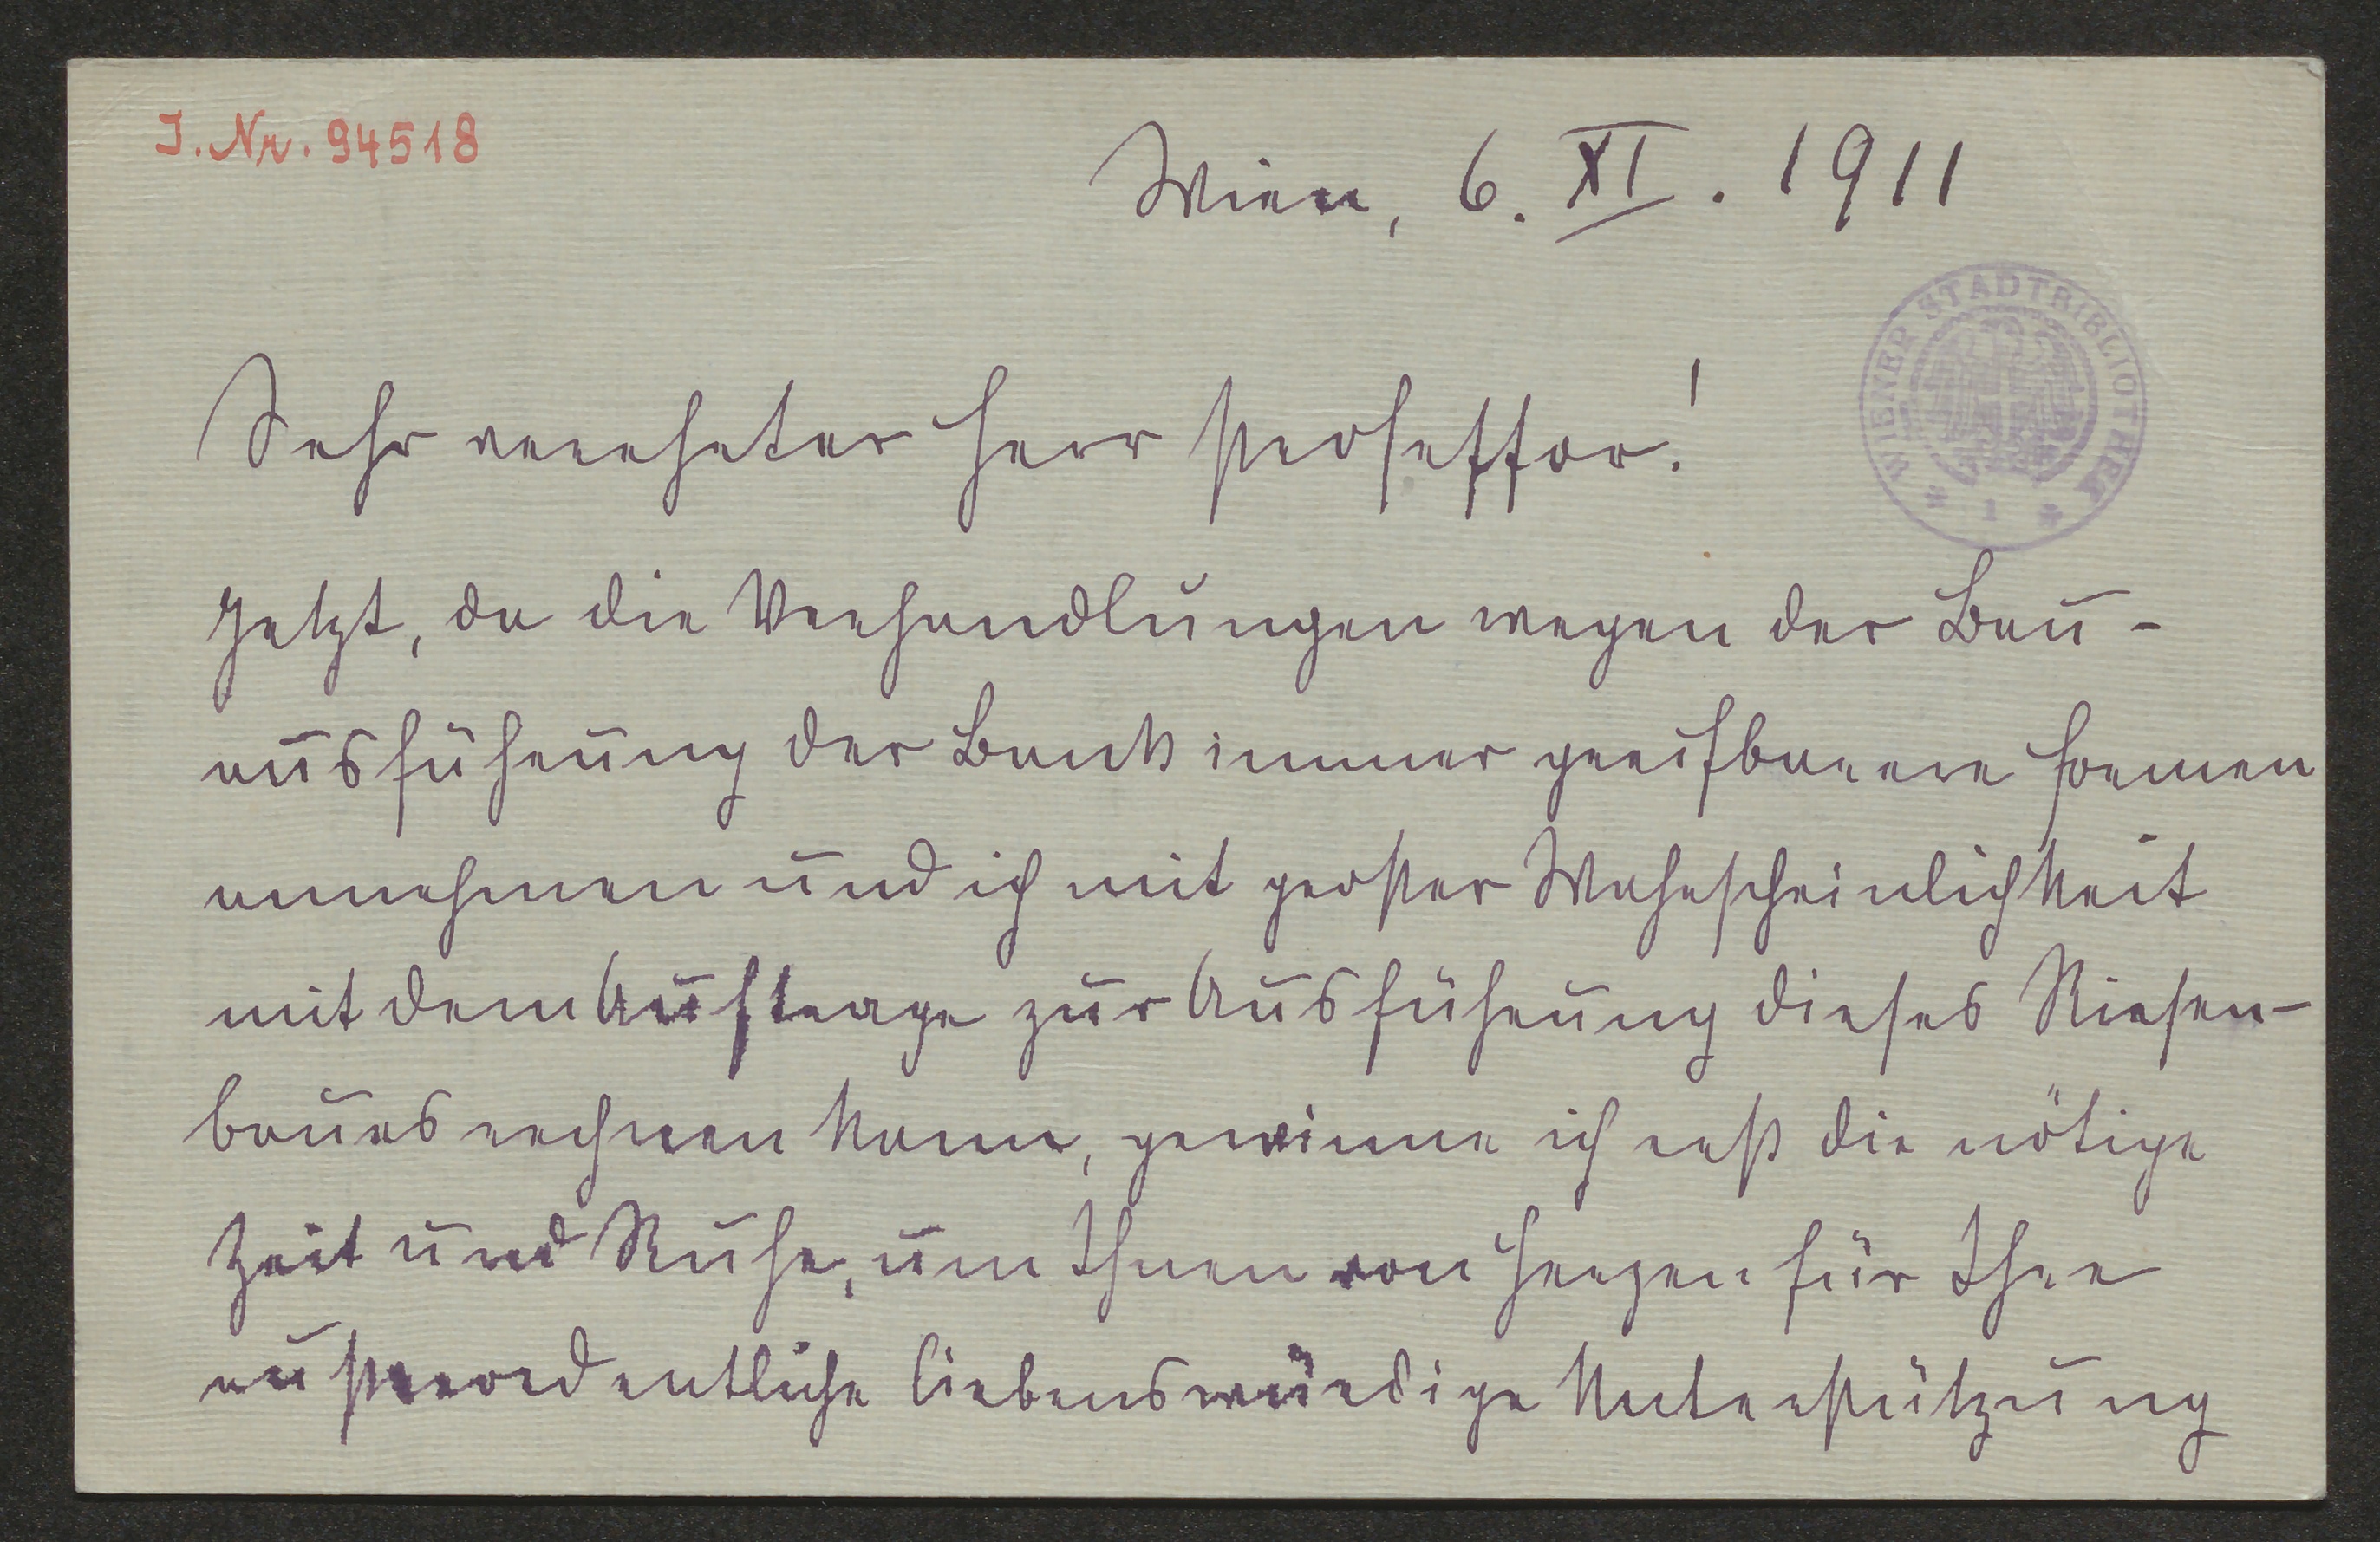 J. Nr. 94518
Wien, 6. XI. 1911
WIENER STADTBIBLIOTHEK
* 1 *
Sehr verehrter Herr Professor!
Jetzt, da die Verhandlungen wegen der Bau-
ausführung der Bank immer greifbarere Formen
annehmen und ich mit großer Wahrscheinlichkeit
mit dem Auftrage zur Ausführung dieses Riesen-
baues rechnen kann, gewinne ich erst die nötige
Zeit und Ruhe, um Ihnen von Herzen für Ihre
außerordentliche liebenswürdige Unterstützung